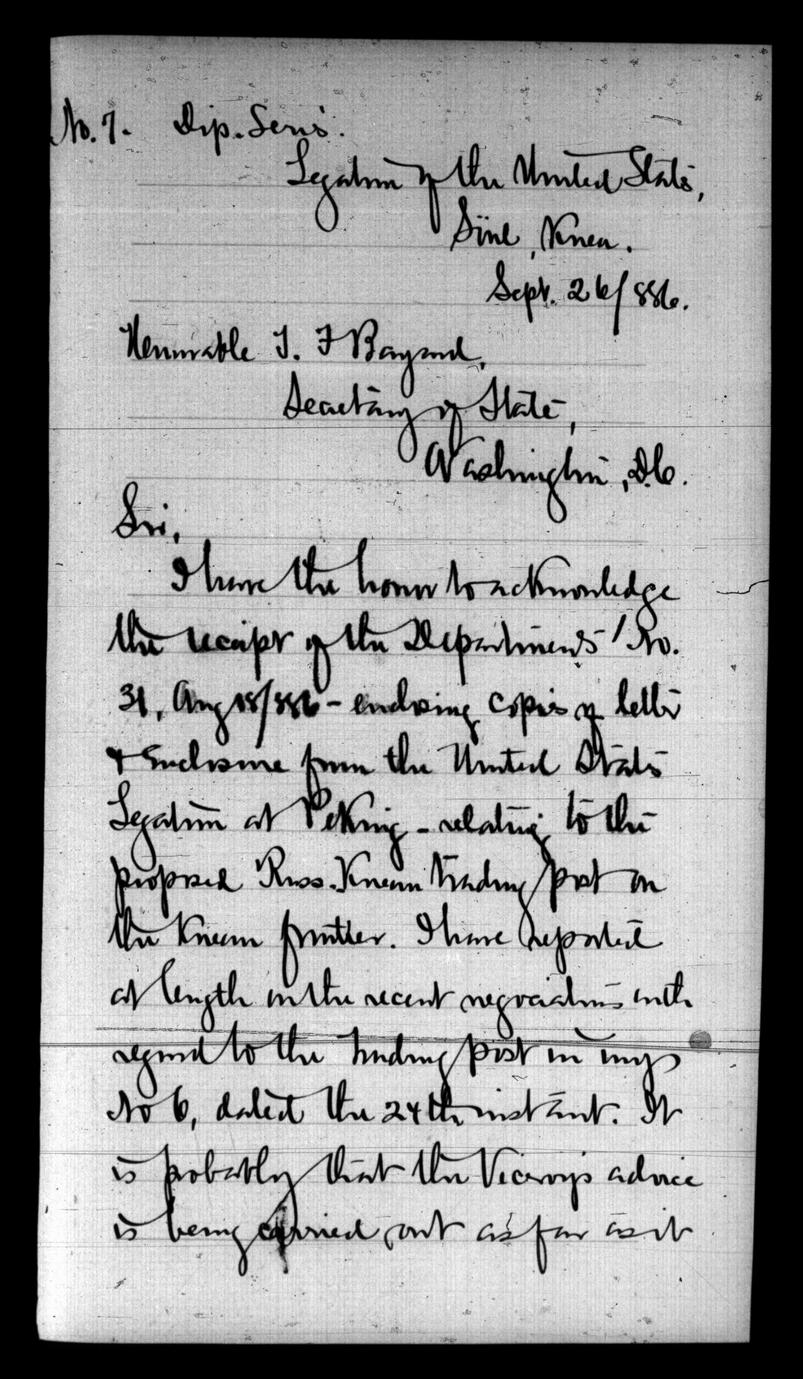 No. 7. Dip. Series.
Legation of the United States,
Söul, Korea.
Sept. 26/886.
Honorable T. F Bayard,
Secretary of State,
Washington, D.C.
Sir,
I have the honor to acknowledge
the receipt of the Departments' No.
31, Aug 18/886 - enclosing copies of letter
& Enclosure from the United States
Legation at Peking - relating to the
proposed Russ. Korean trading post on
the Korean frontier. I have reported
at length on the recent negociations with
regard to the trading post in my
No 6, dated the 24th instant. It
is probably that the Viceroy's advice
is being carried out as far as it